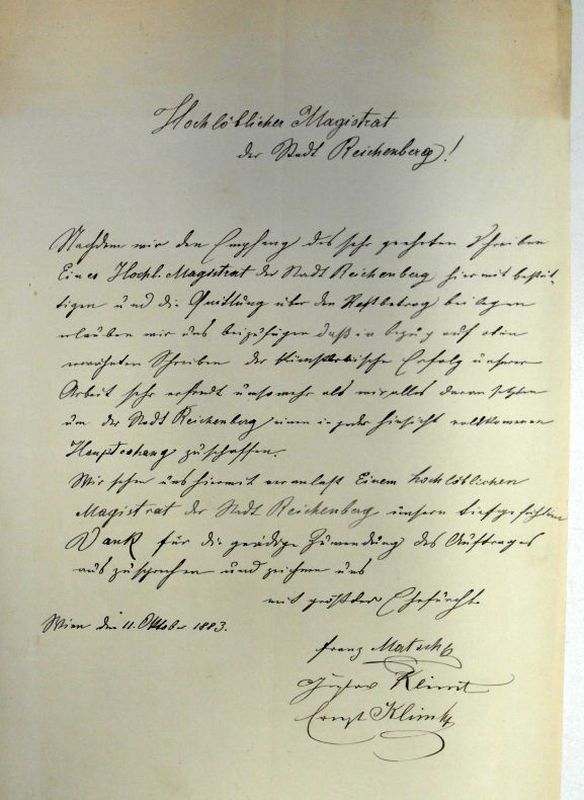 Hochlöblicher Magistrat
der Stadt Reichenberg!
Nachdem wir den Empfang des sehr geehrten Schreiben
Eines Hochl. Magistrat der Stadt Reichenberg hiermit bestät-
tigen und die Quittung über den Restbetrag beilegen
erlauben wir uns beizufügen daß in bezug auf oben
erwähnten Schreiben der künstlerische Erfolg unserer
Arbeit sehr erfreut umsomehr als wir alles daran setzten
um der Stadt Reichenberg einen in jeder Hinsicht vollkommenen
Hauptvorhang zu schaffen.
Wir sehen uns hiermit veranlaßt Einem hochlöblichen
Magistrat der Stadt Reichenberg unsern tiefgefühlten
Dank für die gnädige Zuwendung des Auftrages
auszusprechen und zeichnen uns
mit größter Ehrfurcht
Wien den 11. Oktober 1883.
Franz Matsch
Gustav Klimt
Ernst Klimt